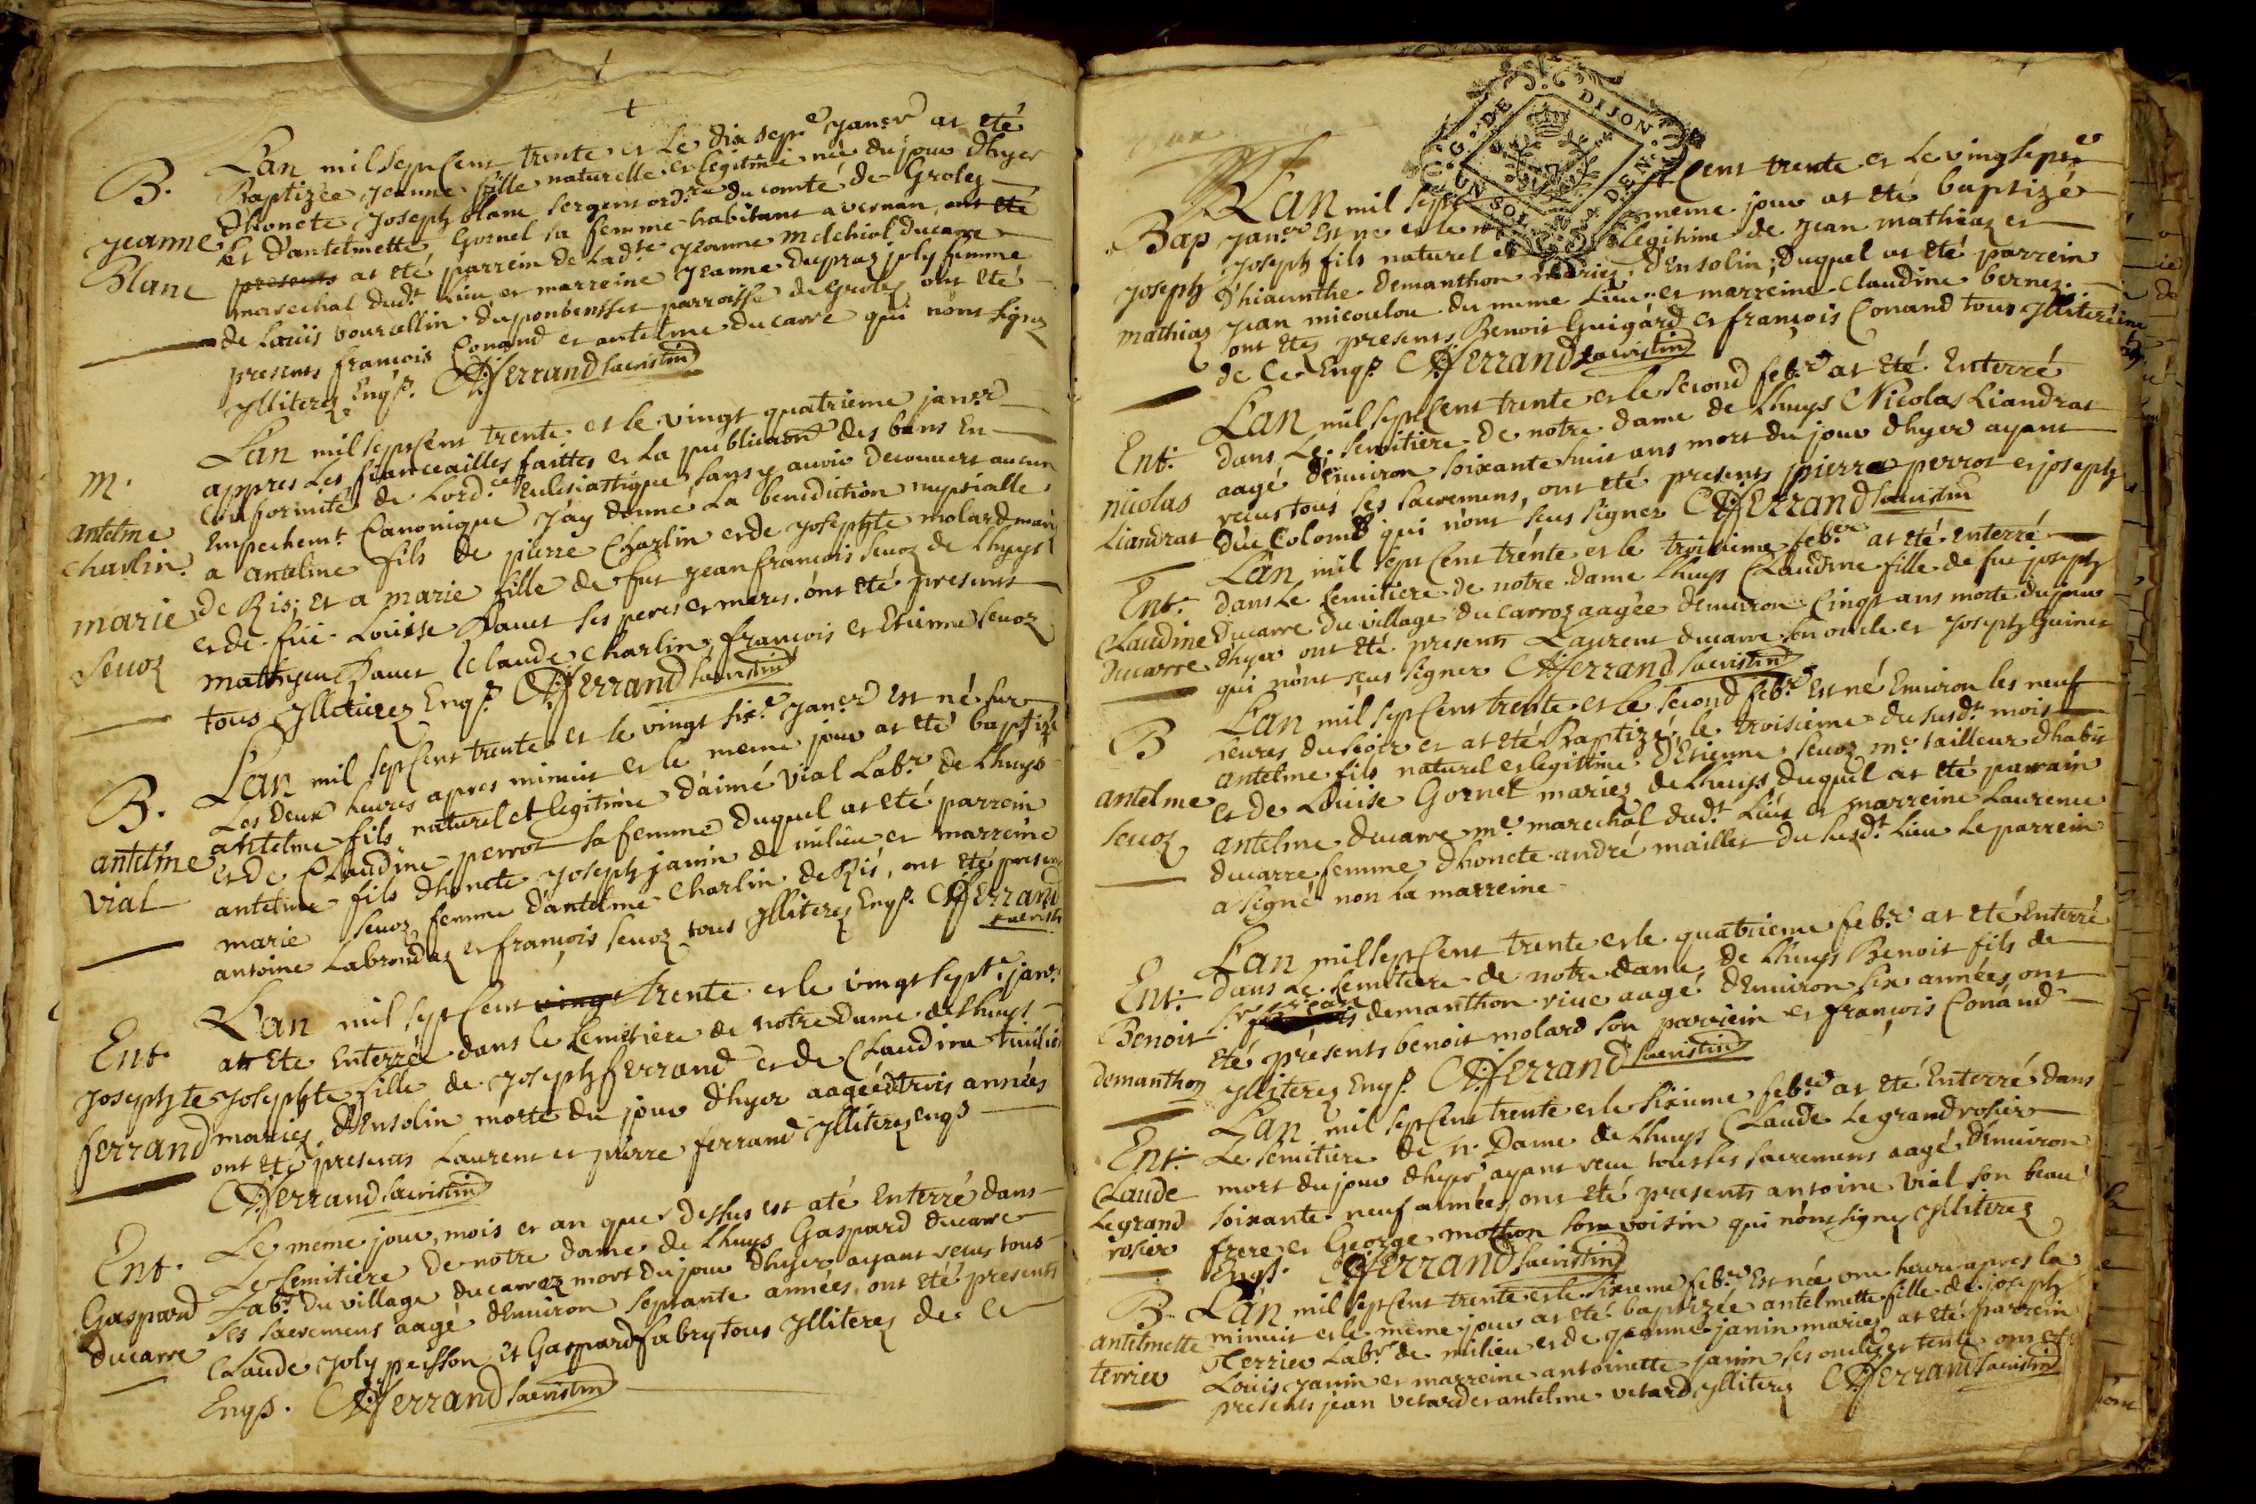 B.
Jeanne
Blanc
L'an mil sept Cent trente et le dix sept.e Janer at eté
Baptizée Jeanne fille naturelle et legitime née du jour d'hyer
d'honete Joseph blanc sergent ord.re du comté de Groley
et d'antelmette Gornel sa femme habitant a vernan, ont eté
presents at eté parrein de Lad.te Jeanne melchiol ducarre
marechal dud.t Lieu et marreine Jeanne dupraz joly femme
de Louis bourcellin du ponbensset parroisse de Groley ont eté
presents françois Conand et antelme ducarre qui n'ont signez
Jlliterez Enqs. Ferrand Sacristin
M.
antelme
charlin
marie
Seuoz
L'an mil sept Cent trente et le vingt quatrieme janer
appres les fianceailles faittes et La publicaon des bans En
Conformité de Lord.ce Eclesiastique sans y auoir decouuert aucun
Empechem.t Canonique J'ay donné La benediction nuptialle
a antelme fils de pierre Charlin et de Josephte molard mariez
de Ris; et a marie fille de fut Jean françois Seuoz de Lhuys
et de füe Louise Bauet ses peres et meres. ont eté presents
mathyeu Bauet Claude Charlin, françois et Etienne Seuoz
tous Jlliterez Enqs. Ferrand Sacristin
B.
antelme
vial
L'an mil sept Cent trente et le vingt six.e Janer est né sur
Les Deux heures apres minuit et le meme jour at eté baptizé
antelme fils naturel et legitime d'aimé vial Labr. de Lhuys
et de Claudine perrot sa femme duquel at eté parrein
antelme fils d'honete Joseph janin de milieu et marreine
marie Seuoz femme d'antelme Charlin de Ris, ont eté presens
antoine Labrondaz et françois Seuoz tous Jlliterez Enqs. Ferrand
Sacristin
Ent.
Josephte
ferrand
L'an mil sept Cent vingt trente et le vingt sept.e janr.
at Ete Enterrée dans le Cemetiere de notre Dame de Lhuys
Josephte fille de Joseph ferrand et de Claudine
mariez d'Ensolin morte du jour d'hyer aageé de trois années
ont eté presents Laurent et pierre ferrand Jlliterez enqs
Ferrand Sacristin
Ent.
Gaspard
ducarre
Le meme jour, mois et an que dessus est até Enterré dans
Le Cemitiere de notre dame de Lhuys Gaspard ducarre
Labr. du village ducarroz mort du jour d'hyer ayant recus tous
ses sacremens aagé d'Enuiron septante années, ont eté presents
Claude Joly peisson et Gaspard fabry tous Jlliterez de ce
Enqs. Ferrand Sacristin
G. DE DIJON
UN SOL 4 DEN.
Bap
Joseph
mathiaz
L'an mil sept Cent trente et le ving sept.e
Janer est né et le meme jour at eté baptizé
Joseph fils naturel et Legitime de Jean mathiaz et
d'hiacinthe demanthon mariez d'Ensolin; duquel at eté parrein
Jean micoulou du meme Lieu et marreine Claudine bernez.
ont etez presents Benoit Guigard et françois Conand tous Jlliterez
de ce Enqs. Ferrand Sacristin
Ent.
nicolas
Liandrat
L'an mil sept Cent trente et le second feb.r at eté Enterré
dans Le Semitiere de notre dame de Lhuys Nicolas Liandrat
aagé d'enuiron soixante huit ans mort du jour d'hyer ayant
recus tous ses sacremens, ont eté presents pierre perrot et joseph
du Colomb qui n'ont sçus signer Ferrand Sacristin
Ent.
Claudine
ducarre
L'an mil sept Cent trente et le troisieme feb.er at eté enterré
dans Le Cemitiere de notre dame Lhuys Claudine fille de fut joseph
Ducarre du village ducarroz aagée d'enuiron Cinqt ans morte du jour
d'hyer ont eté presents Laurent ducarre son oncle et Joseph Guinet
qui n'ont sçus signer Ferrand Sacristin
B
antelme
Seuoz
L'an mil sept Cent trente et le second feb.r Est né Enuiron les neuf
ieures du seoir et at eté Baptizé le troisieme du susd.t mois
antelme fils naturel et legitime d'Etienne Seuoz m.e tailleur d'habit
et de Louise Gornet mariez de Lhuys duquel at eté parrain
antelme ducarre m.e marechal dud.t Lieu et marreine Laurence
ducarre femme d'honete andré maillet du susd.t Lieu Le parrein
a signé non la marreine
Ent.
Benoit
Demanthon
L'an mil sept Cent trente et le quatrieme feb.r at eté Enterré
dans Le Cemitiere de notre dame de Lhuys Benoit fils de
S.r jean demanthon viue aagé d'Enuiron six années ont
eté présents benoit molard son parrein et françois Conand
Jlliterez Enqs. Ferrand Sacristin
Ent.
Claude
Legrand
rosier
L'an mil sept Cent trente et le sixieme feb.r at eté Enterré dans
Le Semitiere de n. Dame de Lhuys Claude Legrand rosier
mort du jour d'hyer ayant receu tous ses sacremens aagé d'enuiron
soixante neuf années ont eté presents antoine Vial son beau
frere et George mothon son voisin qui n'ont signez Jlliterez
Enqs. Ferrand Sacristin
B.
antelmette
terrier
L'an mil sept Cent trente et le sixieme feb.r Est née une heure apres la
minuit et le meme jour at eté baptizée antelmette fille de joseph
Terrier Labr. de milieu et de Jeanne janin mariez at eté parrein
Louis Janin et marreine antoinette janin ses oncle et tente ont eté
presents jean vetard et antelme vetard Jlliterez Ferrand Sacristin